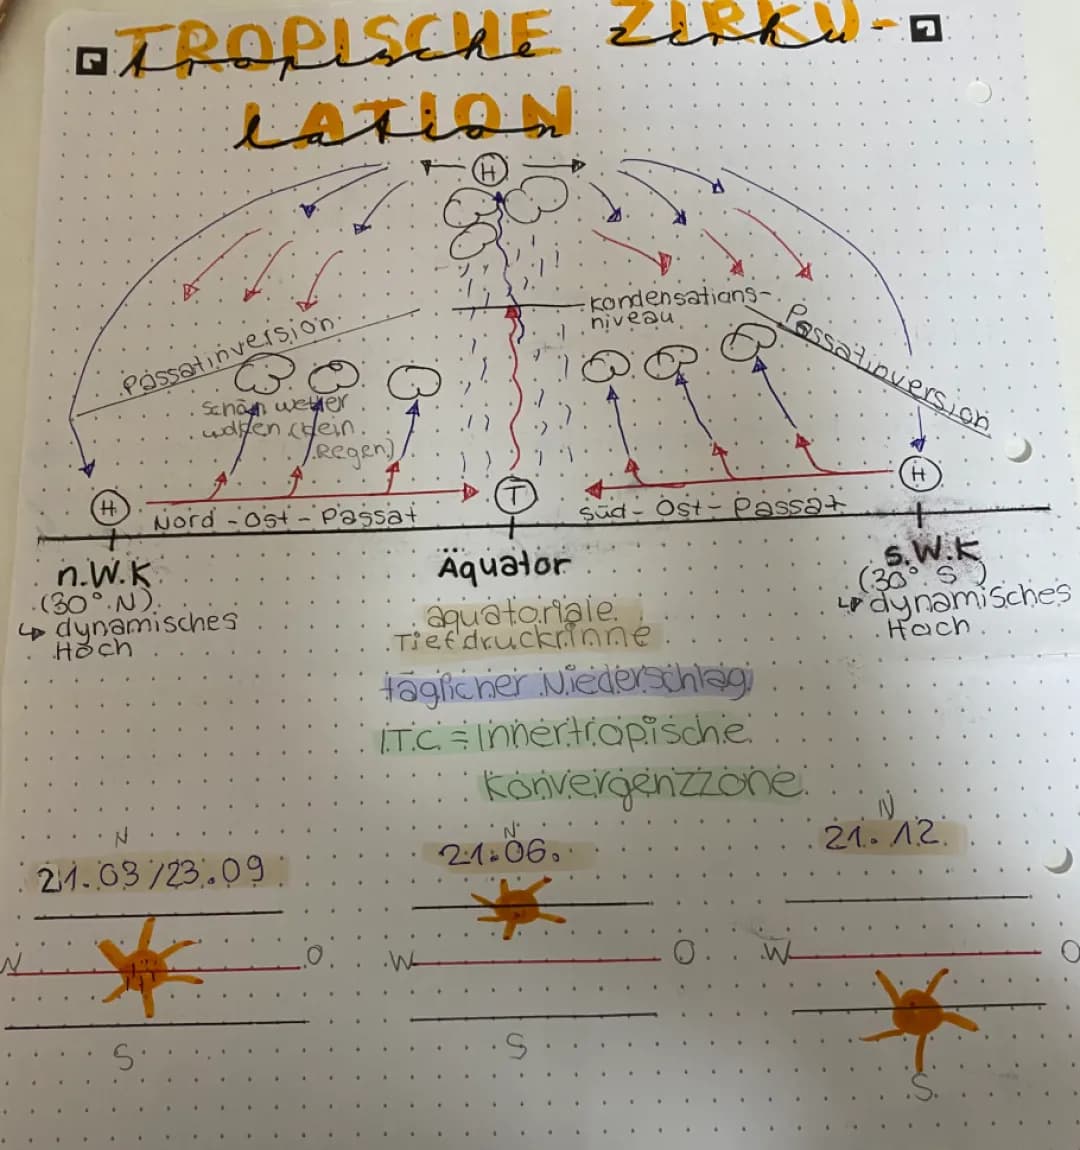 TROPISCHE ZIRKU-
tropische zirku-
LATION
lation
H
Kondensations-
niveau
Passatinversion
Passatinversion
Schön wetter
wolken (kein
Regen)
H
T
H
Nord-Ost-Passat
Süd-Ost-Passat
n.W.K
Äquator
s.W.K
(30° N)
(30° S)
↳ dynamisches
Hoch
↳ dynamisches
Hoch
äquatoriale
Tiefdruckrinne
täglicher Niederschlag
I.T.C. = Innertropische
Konvergenzzone
N
21.03/23.09
W
O
S
N
21.06.
W
O
S
N
21.12.
W
O
S